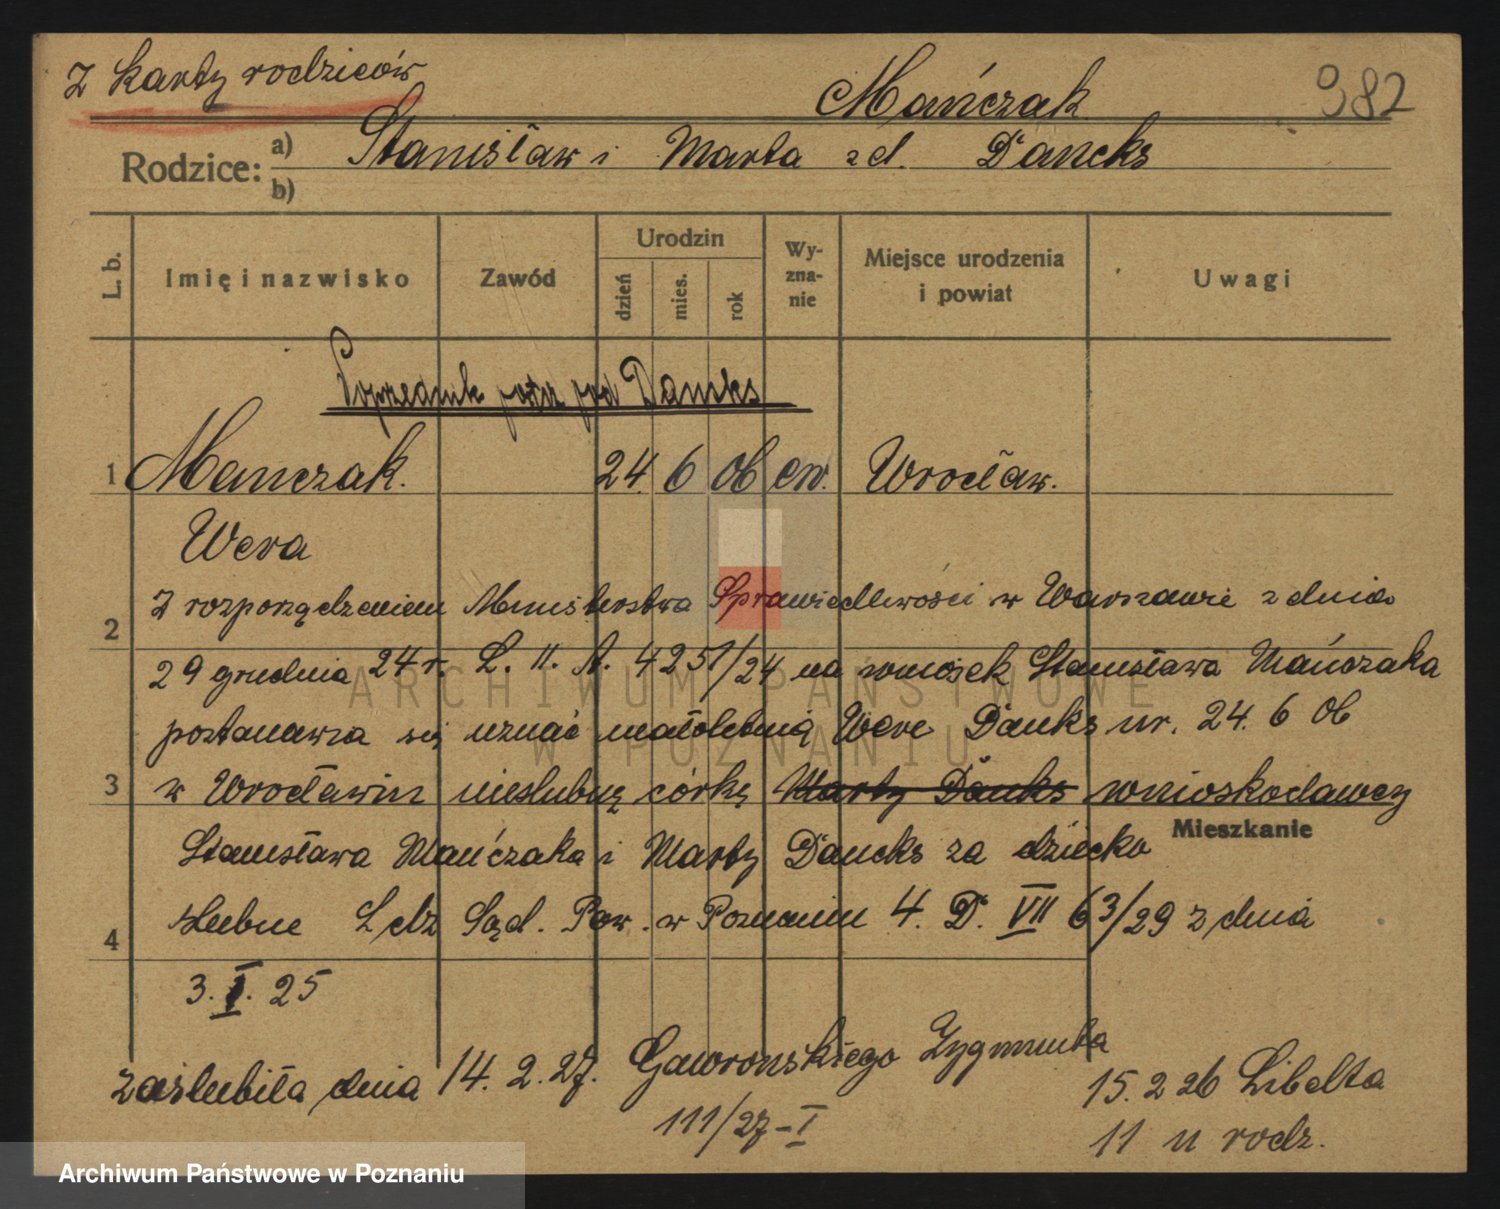 z karty rodziców
Mańczak
982
Rodzice: a) Stanisław i Marta zd. Dancks
b)
L. b.
Imię i nazwisko
Zawód
Urodzin
dzień
mies.
rok
Wy-
zna-
nie
Miejsce urodzenia
i powiat
Uwagi
Poprzednik patrz pod Dancks
1 Mańczak. 24. 6 06 ew. Wrocław.
Wera
2 Z rozporządzeniem Ministerstwa Sprawiedliwości w Warszawie z dnia
29 grudnia 24 r. L. II. A. 4251/24 na wniosek Stanisława Mańczaka
postanawia się uznać małoletnią Werę Dancks ur. 24. 6 06
3 w Wrocławiu nieslubną córkę Marty Dancks wnioskodawcy
Mieszkanie
Stanisława Mańczaka i Marty Dancks za dziecko
4 slubne L dz Sąd. Pow. w Poznaniu 4. D. VII 63/29 z dnia
3. I. 25
zaślubiła dnia 14. 2. 27. Gawrońskiego Zygmunta
111/27-I
15. 2 26 Libelta
11 u rodz.
ARCHIWUM PAŃSTWOWE
W POZNANIU
Archiwum Państwowe w Poznaniu